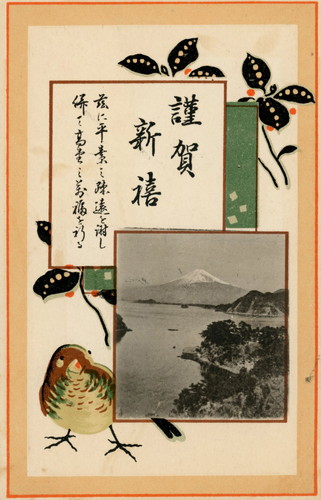 謹賀
新禧
茲に平素之疎遠を謝し
併て高堂之萬福を祈る